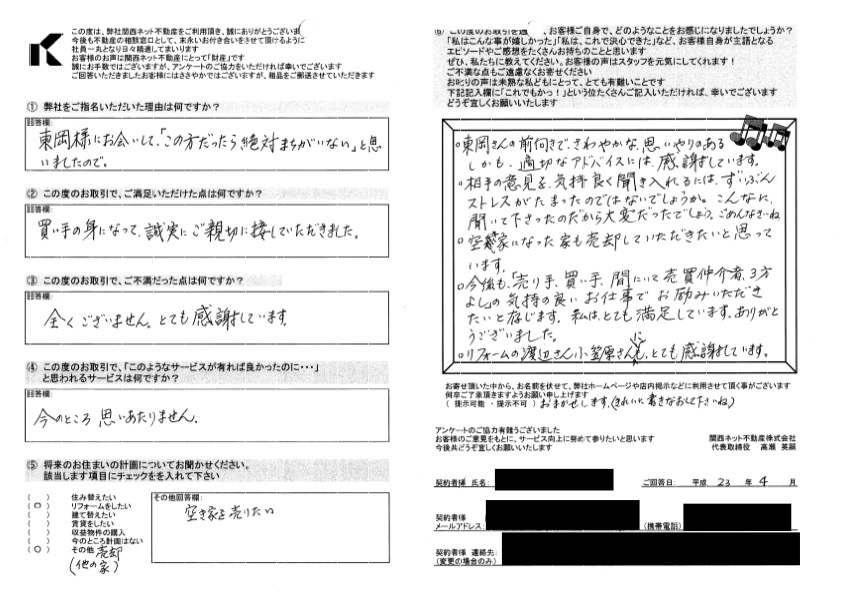 この度は、弊社関西ネット不動産をご利用頂き、誠にありがとうございま
今後も不動産の相談窓口として、末永いお付き合いをさせて頂けるように
社員一丸となり日々精進してまいります
お客様のお声は関西ネット不動産にとって「財産」です
誠にお手数ではございますが、アンケートのご協力をいただければ幸いでございます
ご回答いただきましたお客様にはささやかではございますが、粗品をご郵送させていただきます
① 弊社をご指名いただいた理由は何ですか？
回答欄:
東岡様にお会いして、「この方だったら絶対まちがいない」と思
いましたので。
② この度のお取引で、ご満足いただけた点は何ですか？
回答欄:
買い手の身になって、誠実にご親切に接していただきました。
③ この度のお取引で、ご不満だった点は何ですか？
回答欄:
全くございません。とても感謝しています。
④ この度のお取引で、「このようなサービスが有れば良かったのに・・・」
と思われるサービスは何ですか？
回答欄:
今のところ思いあたりません。
⑤ 将来のお住まいの計画についてお聞かせください。
該当します項目にチェックを入れて下さい
( ) 住み替えたい
(○) リフォームをしたい
( ) 建て替えたい
( ) 賃貸をしたい
( ) 収益物件の購入
( ) 今のところ計画はない
(○) その他 売却
(他の家)
その他回答欄:
空き家を売りたい
⑥ この度のお取引を通 、お客様ご自身で、どのようなことをお感じになりましたでしょうか？
「私はこんな事が嬉しかった」「私は、これで決心できた」など、お客様自身が主語となる
エピソードやご感想をたくさんお持ちのことと思います
ぜひ、私たちに教えてください。お客様の声はスタッフを元気にしてくれます！
ご不満な点もご遠慮なくお寄せください
お叱りの声は未熟な私どもにとって、とても有難いことです
下記記入欄に「これでもかっ！」という位たくさんご記入いただければ、幸いでございます
どうぞ宜しくお願いいたします
○東岡さんの前向きで、さわやかな、思いやりのある
しかも、適切なアドバイスには、感謝しています。
○相手の意見を、気持良く聞き入れるには、ずいぶん
ストレスがたまったのではないでしょうか。こんなに、
聞いて下さったのだから大変だったでしょう。ごめんなさいね
○空家になった家も売却していただきたいと思って
います。
○今後も、「売り手、買い手、間にいて売買仲介者、3方
よし」の気持の良いお仕事でお励みいただき
たいと存じます。私は、とても満足しています。ありがと
うございました。
○リフォームの渡辺さん、小笠原さんにも、とても感謝しています。
お寄せ頂いた中から、お名前を伏せて、弊社ホームページや店内掲示などに利用させて頂く事がございます
何卒ご了承頂きますようお願い申し上げます
( 提示可能 ・ 提示不可 ) おまかせします。(きれいに書きなおして下さいね)
アンケートのご協力有難うございました
お客様のご意見をもとに、サービス向上に努めて参りたいと思います
今後共どうぞ宜しくお願いいたします
関西ネット不動産株式会社
代表取締役 高瀬 英嗣
契約者様 氏名:
ご回答日: 平成 23 年 4 月
契約者様
メールアドレス:
(携帯電話)
契約者様 連絡先:
(変更の場合のみ)